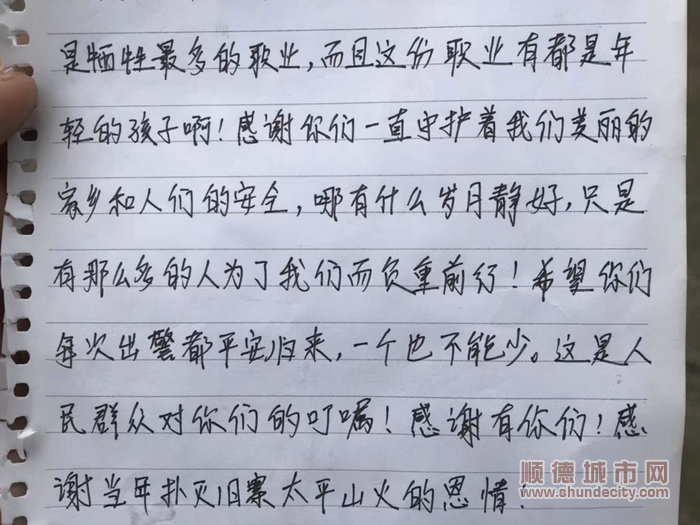 是牺牲最多的职业，而且这份职业有都是年
轻的孩子啊！感谢你们一直守护着我们美丽的
家乡和人们的安全，哪有什么岁月静好，只是
有那么多的人为了我们而负重前行！希望你们
每次出警都平安归来，一个也不能少。这是人
民群众对你们的叮嘱！感谢有你们！感
谢当年扑灭旧寨太平山火的恩情！
顺德城市网
www.shundecity.com